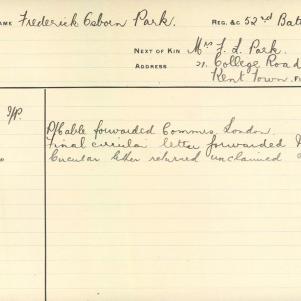 NAME Frederick Osborn Park. REG. &C 52nd Batt
NEXT OF KIN Mrs J. S. Park.
ADDRESS 21. College Road
Kent Town.
P/Cable forwarded Commrs. London.
Final circular letter forwarded
Circular letter returned unclaimed